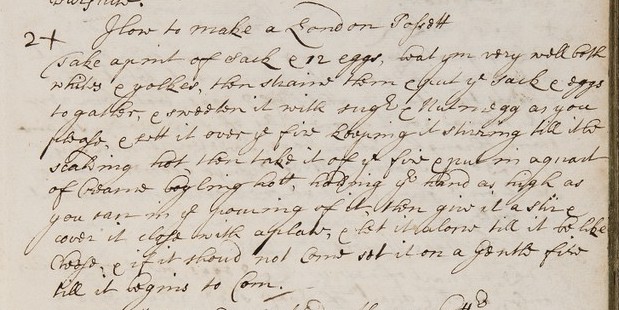 2+ How to make a London Possett
Take a pint of Sack & 12 eggs, beat ym very well both
whites & yolkes, then straine them & put ye Sack & eggs
togather, & sweeten it with sugr & Nutmegg as you
please, & sett it over ye fire keeping it stirring till it be
scalding hott then take it off ye fire & put in a quart
of Creame boyling hott, holding yr hand as high as
you can in ye pouring of it, then give it a stir &
cover it close with a plate, & let it alone till it be like
Cheese, & if it shoud not Come set it on a Gentle fire
till it begins to Com.